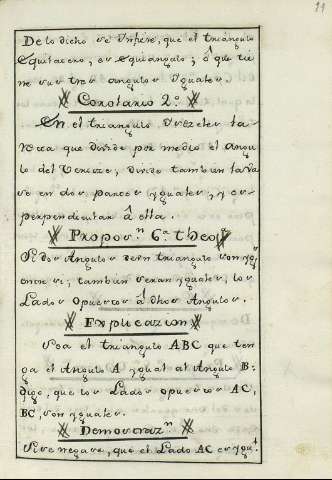 11
De lo dicho se Infiere, que el triangulo
Equilatero, es Equiangulo; ô que tie
ne sus tres angulos Yguales.
Corolario 2.º
En el triangulo Yszeles la
Recta que divide por medio el Angu
lo del Vertize, divide tambien la Va
se en dos partes yguales, y es
perpendicular â ella.
Propos.n 6.a Theo.
Si dos Angulos de un triangulo son yg.s
entre si, tambien seran yguales, los
Lados opuestos â dhos Angulos.
Explicazion
Sea el triangulo ABC que ten
ga el Angulo A ygual al Angulo B:
digo, que los Lados opuestos AC,
BC, son yguales.
Demostraz.n
Si se negare, que el Lado AC es ygu.l